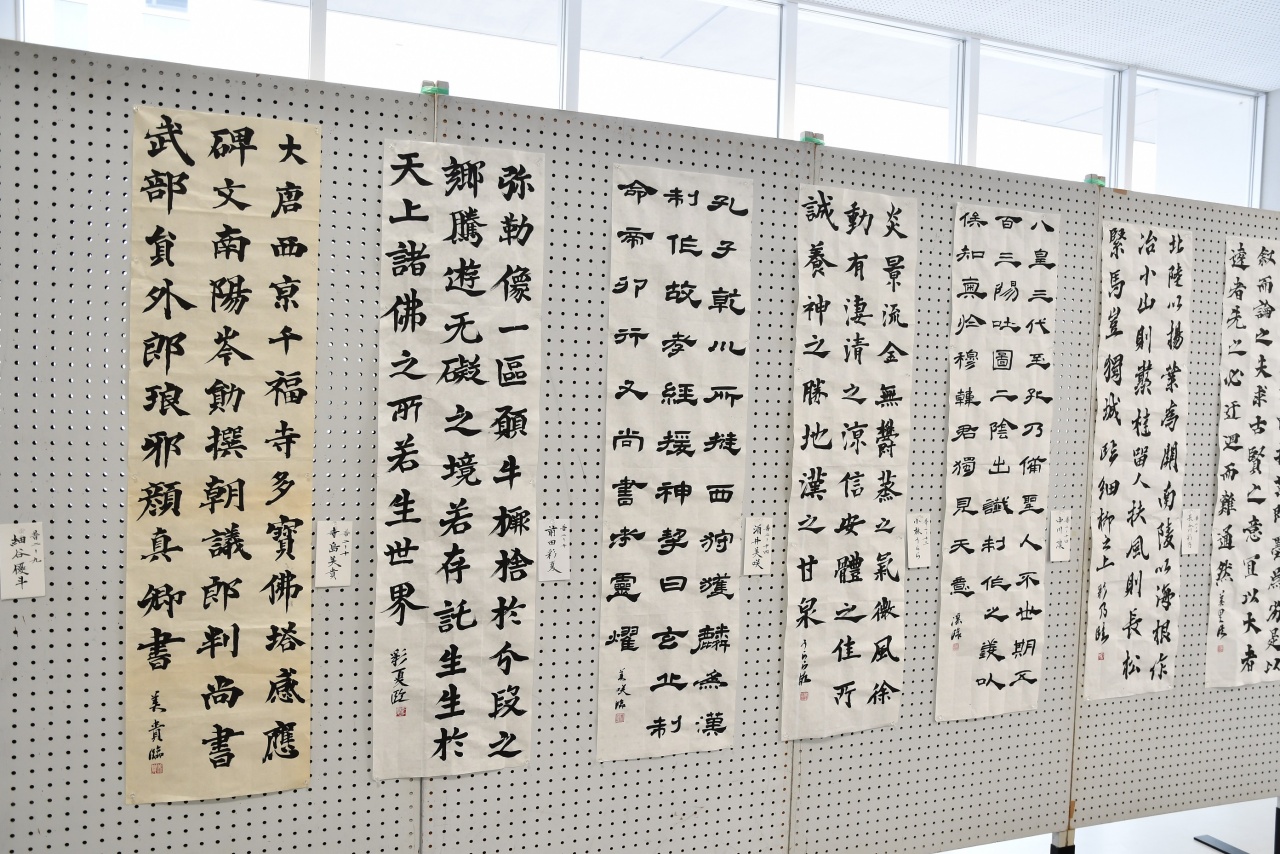 細谷優斗
大唐西亰千福寺多寶佛塔感應
碑文南陽岑勛撰朝議郎判尚書
武部員外郎琅邪顔真卿書
美貴臨
寺島美貴
弥勒像一區願牛橛捨於分段之
鄉騰遊无礙之境若存託生生於
天上諸佛之所若生世界
彩夏臨
前田彩夏
孔子乾川所挺西狩獲麟為漢
制作故孝經援神挈曰玄丘制
命帝卯行又尚書考靈燿
美咲臨
酒井美咲
炎景流金無鬱蒸之氣微風徐
動有淒清之涼信安體之佳所
誠養神之勝地漢之甘泉
八皇三代至孔乃備聖人不世期五
百三陽吐圖二陰出讖制作之義以
俟知奧於穆韓君獨見天意
北陸以揚葉為關南陵以海根作
冶小山則叢桂留人扶風則長松
繫馬豈獨城臨細柳之上
敘而論之夫求古賢之意宜以大者
遠者先之必迂迴而難通然